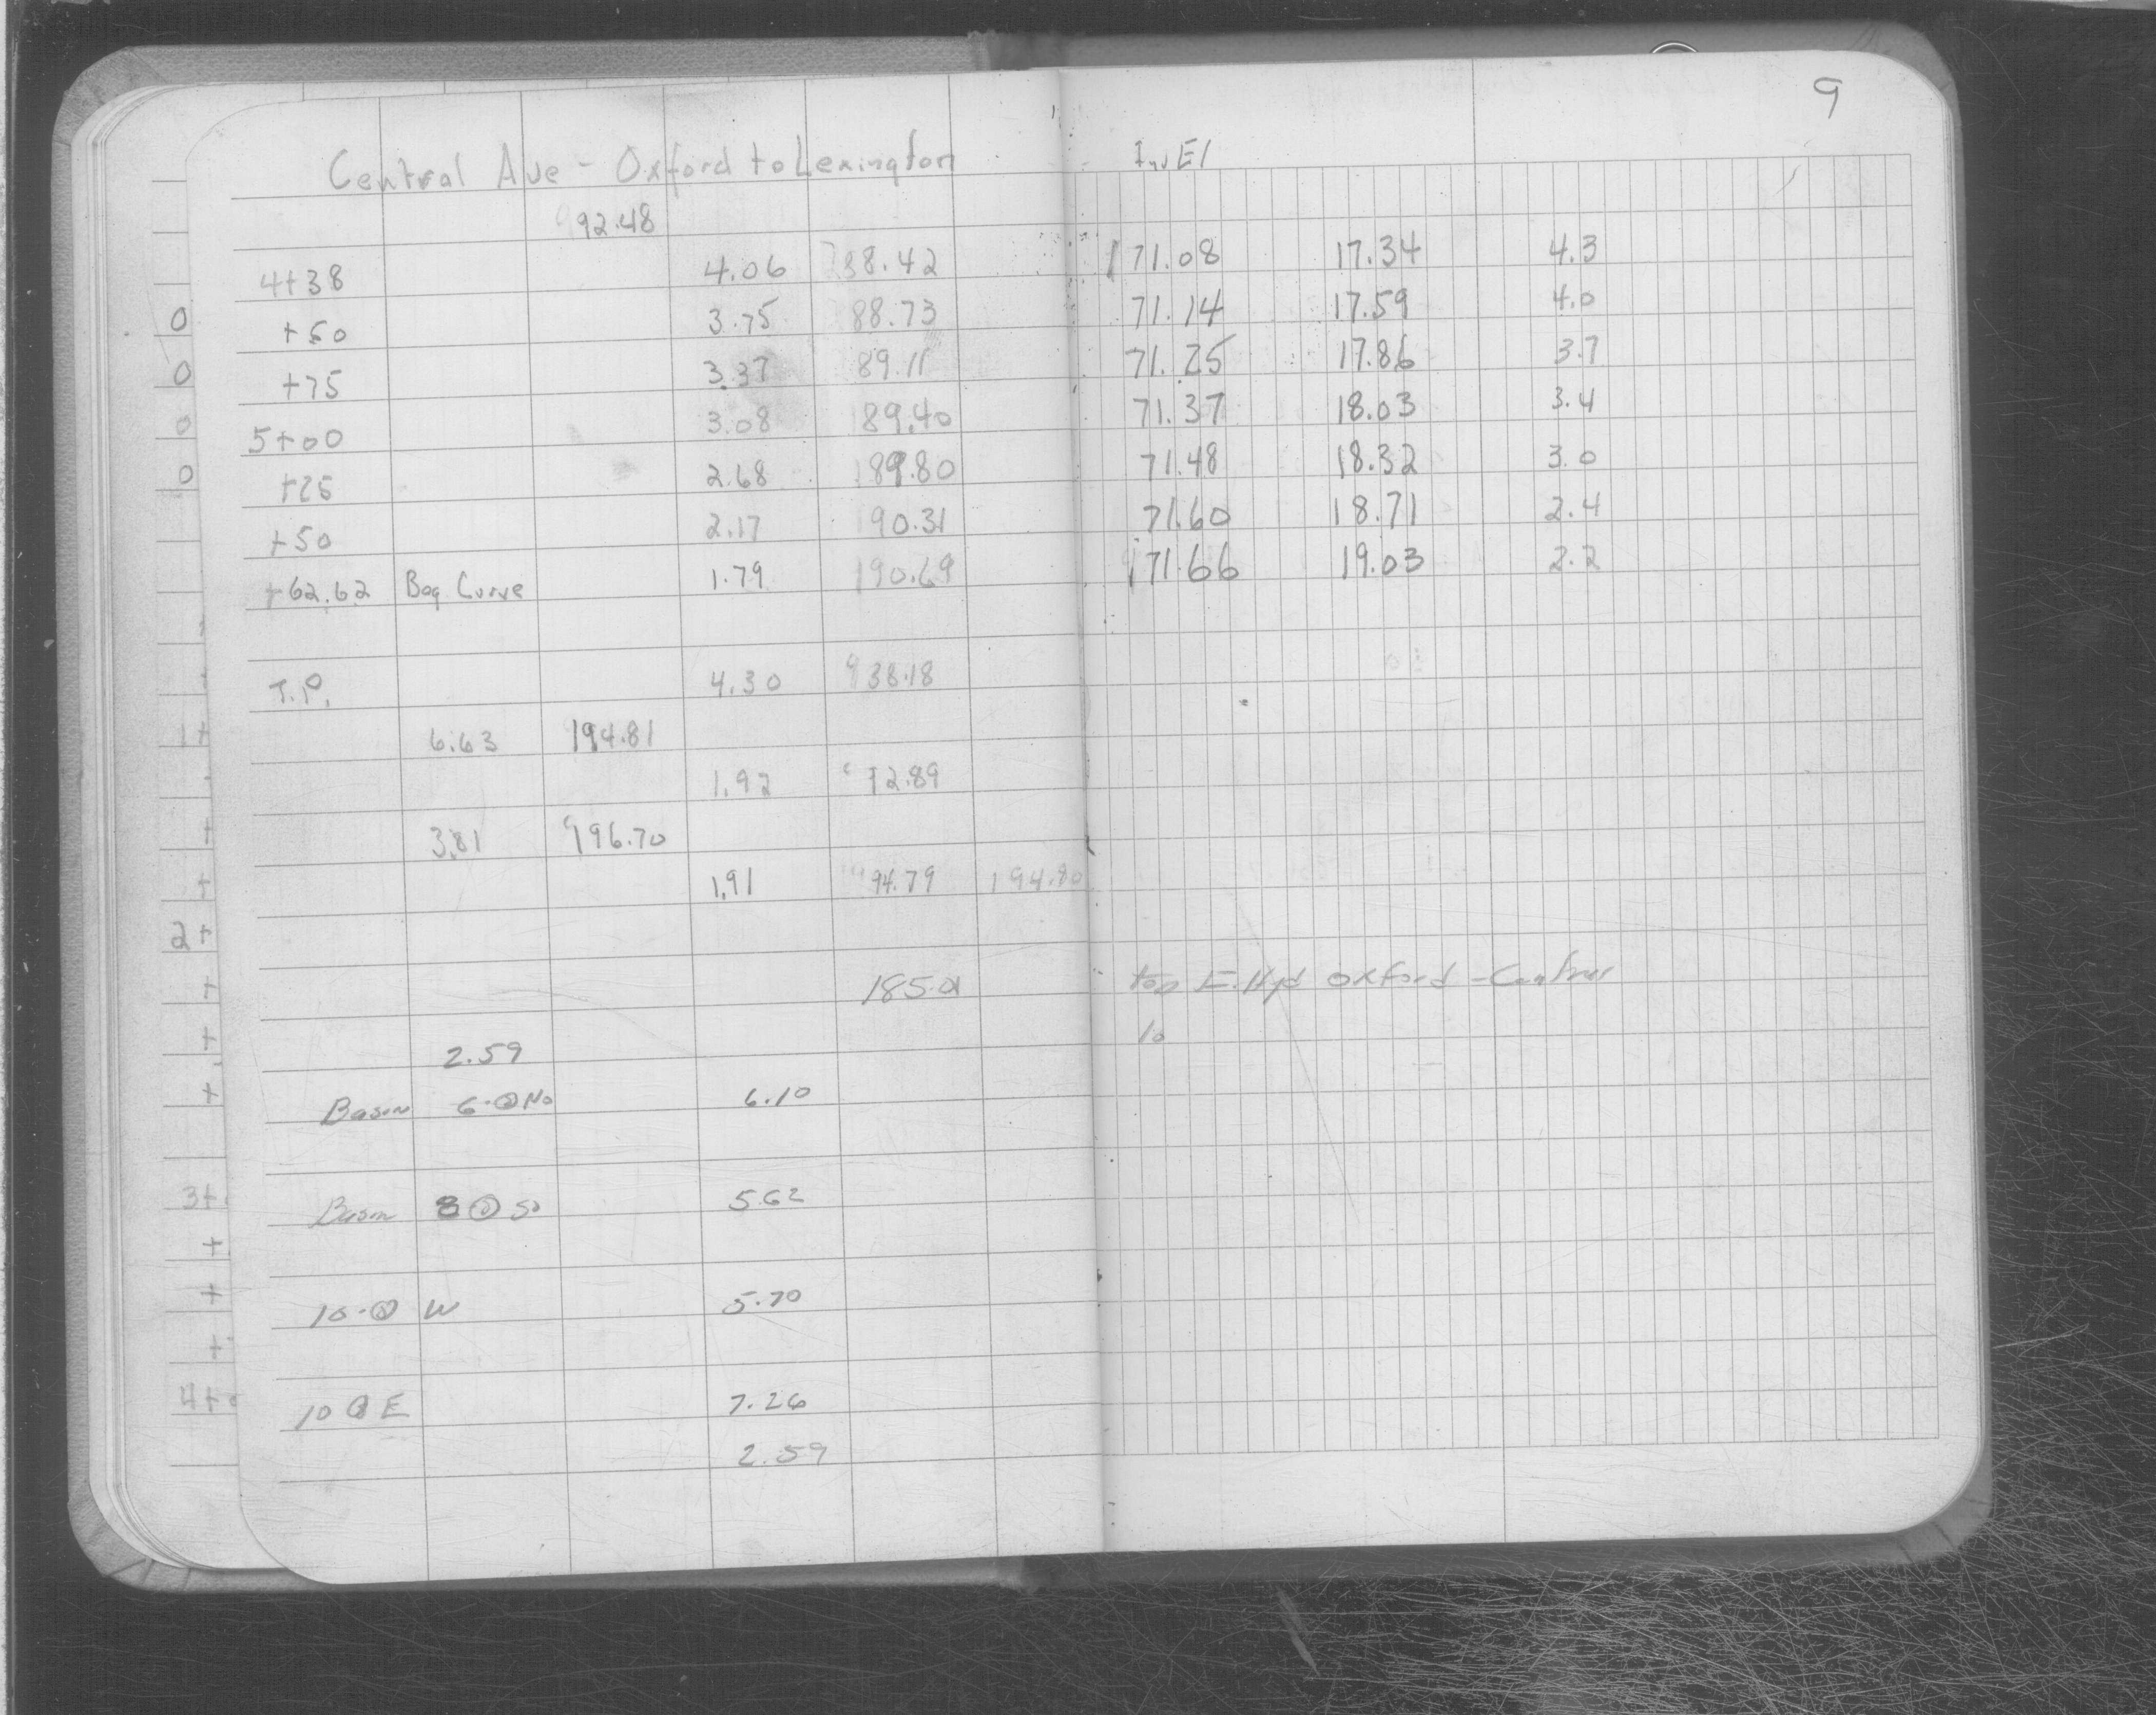 9
Central Ave - Oxford to Lexington Inv El
92.48
4+38 4.06 88.42 171.08 17.34 4.3
+50 3.75 88.73 71.14 17.59 4.0
+75 3.37 89.11 71.25 17.86 3.7
5+00 3.08 89.40 71.37 18.03 3.4
+25 2.68 189.80 71.48 18.32 3.0
+50 2.17 90.31 71.60 18.71 2.4
+62.62 Beg Curve 1.79 190.69 171.66 19.03 2.2
T.P. 4.30 88.18
6.63 194.81
1.92 92.89
3.81 196.70
1.91 94.79 194.80
185.01 top E. Hyd Oxford - Central
10
2.59
Basin 6 No 6.10
Basin 8 So 5.62
10 W 5.70
10 E 7.26
2.59
0
0
0
0
1+
+
+
2+
+
+
+
3+
+
+
+
4+